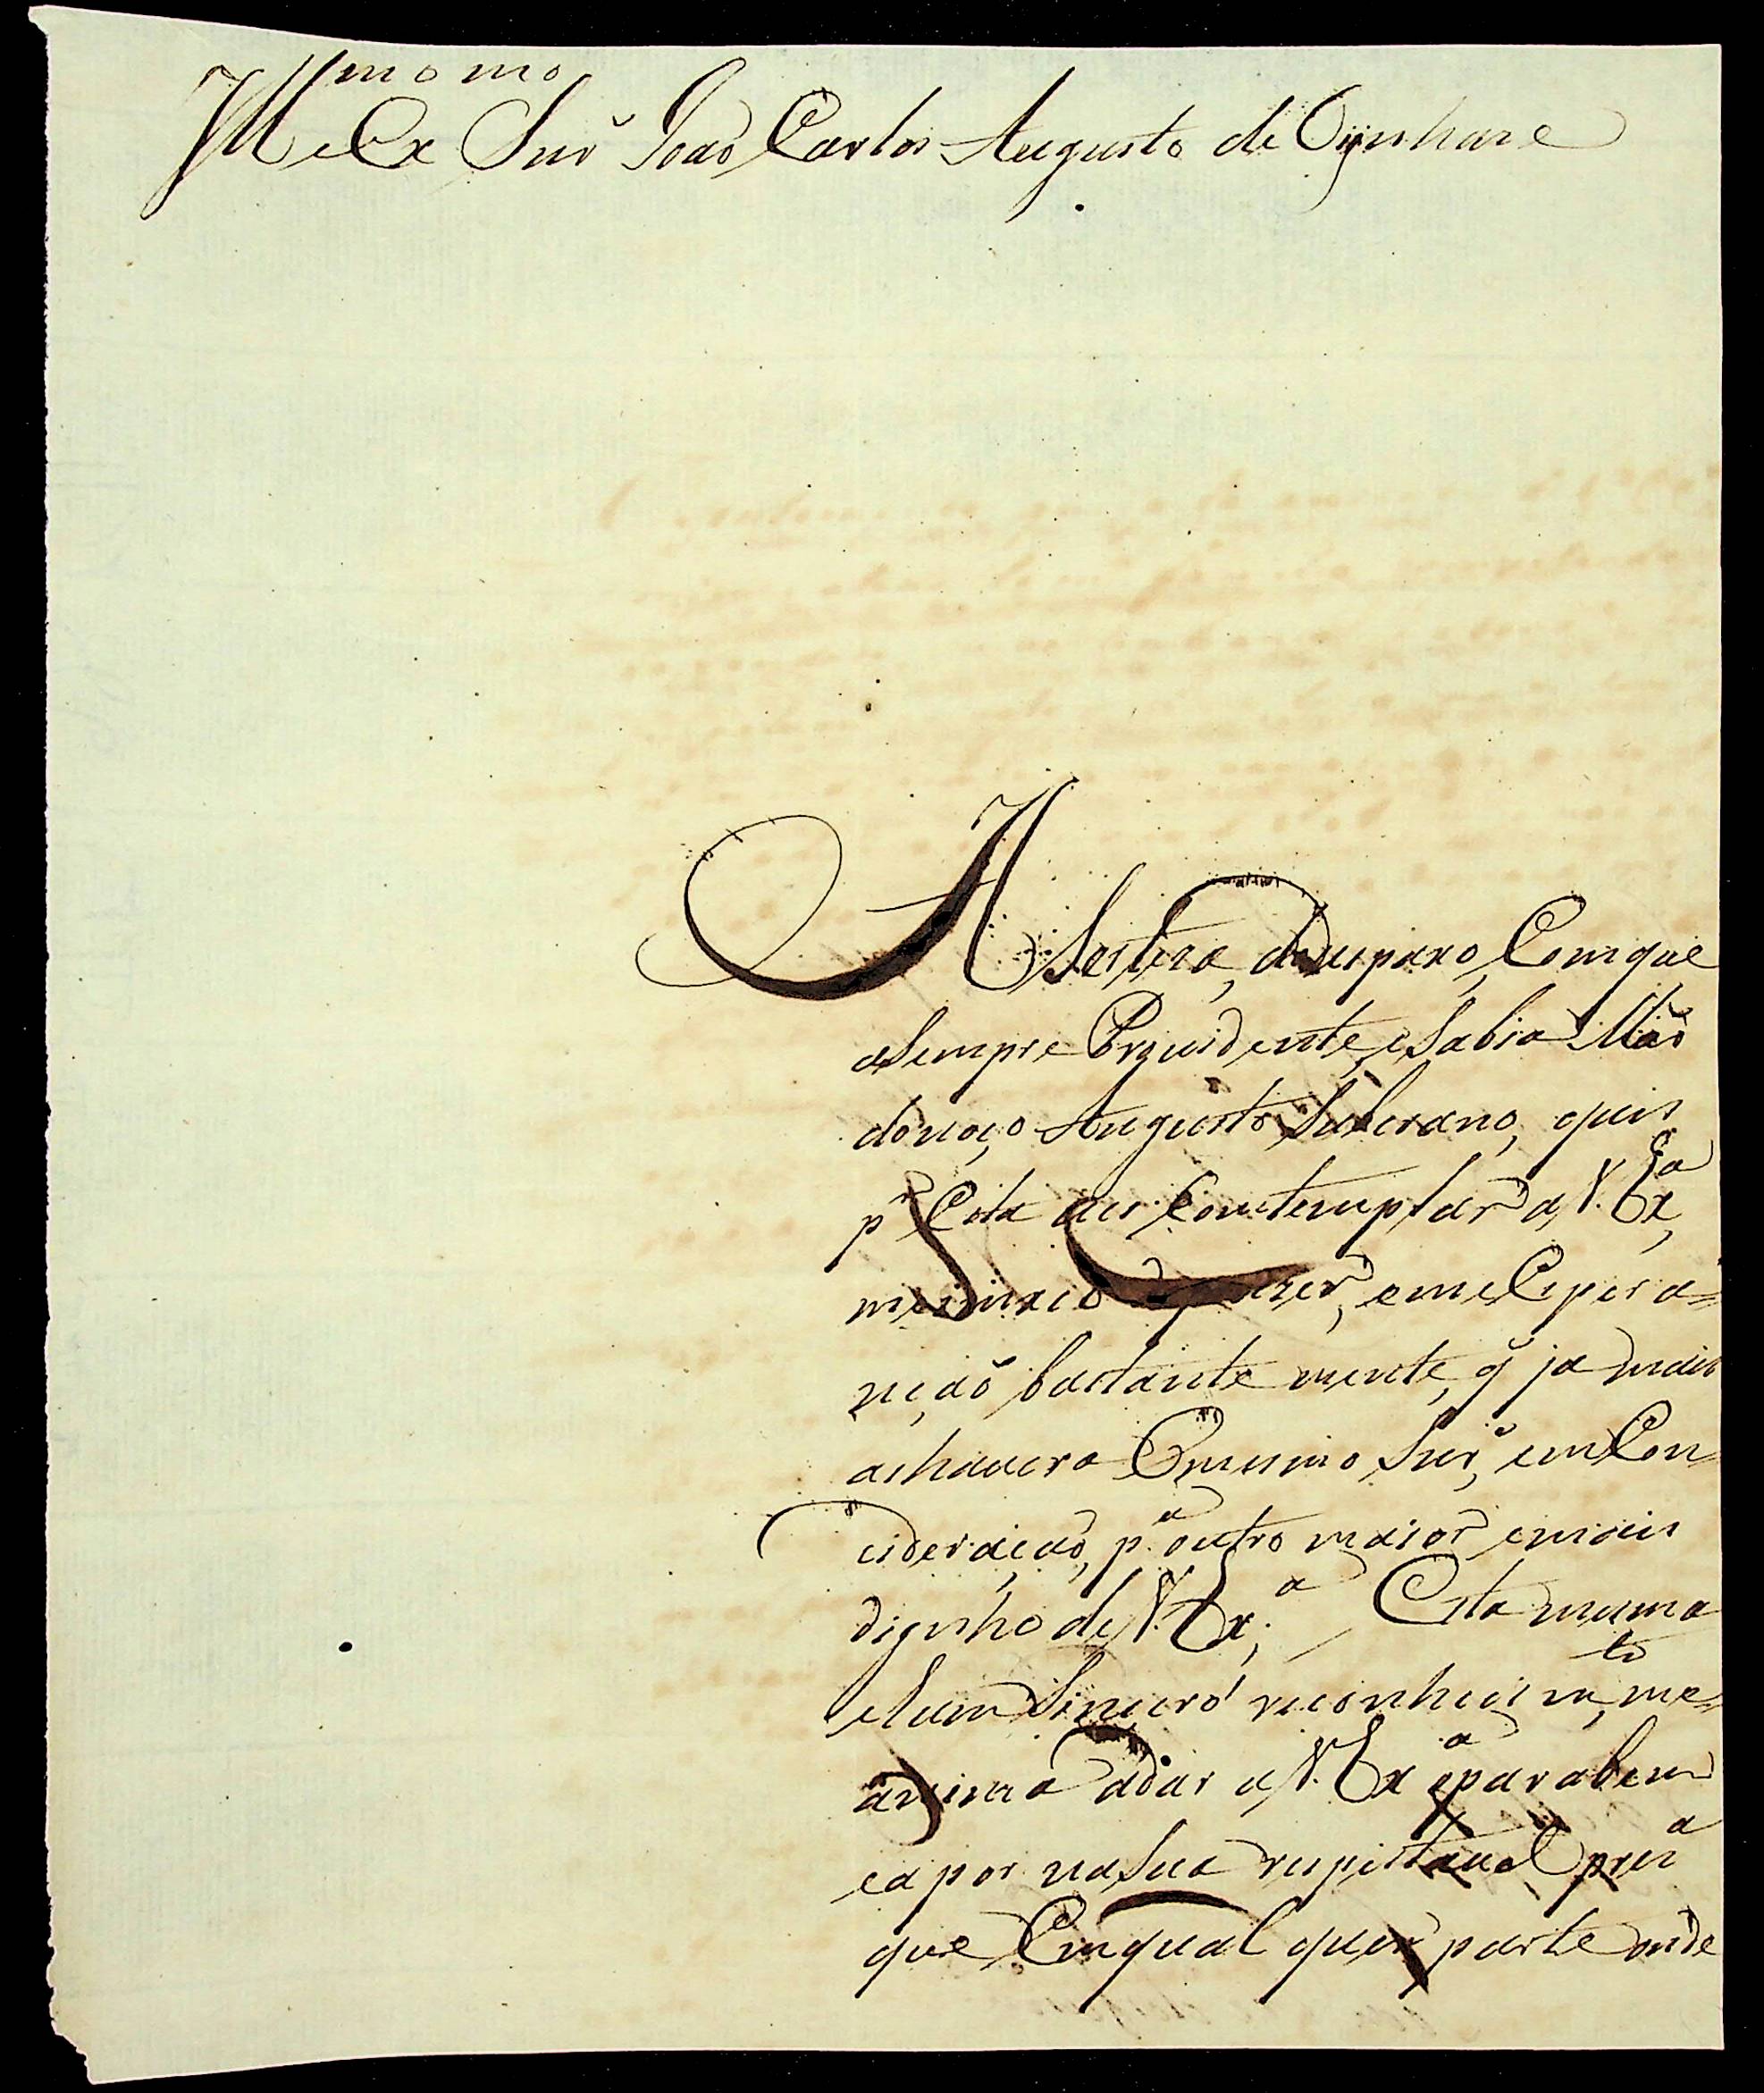 Ill.mo e Ex.mo Snr̃ João Carlos Augusto de Oÿnhaze
A Certeza, do desparxo, Com que
a Sempre Prouidente, e Sabia Mão
do noço Augusto Soberano, quis
p.r Esta ues Contemplar a, V. Ex.ca,
me emxeo de prazer, e me Cipera=
nçaõ bastante mente, q̃ ja mais
achauera O mesmo Snr̃, em Con
cideraçaõ, p.a outro maior e mais
dignho de, V. Ex.a; Esta mesma
e hum Sincero reconhecim.to, me=
anima a dar a, V. Ex.a o parabem
e a por na Sua respeitauel pres.a
que Em qual quer parte onde